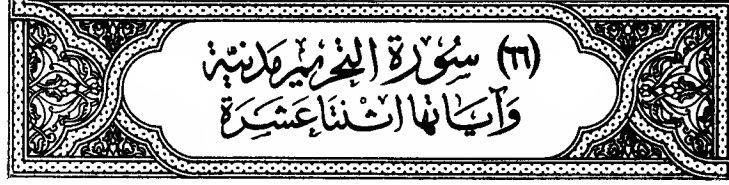 (٦٦) سُوْرَة التحْريم مَدَنيَّة
وَآيَاتها اثنتَا عَشَرَة